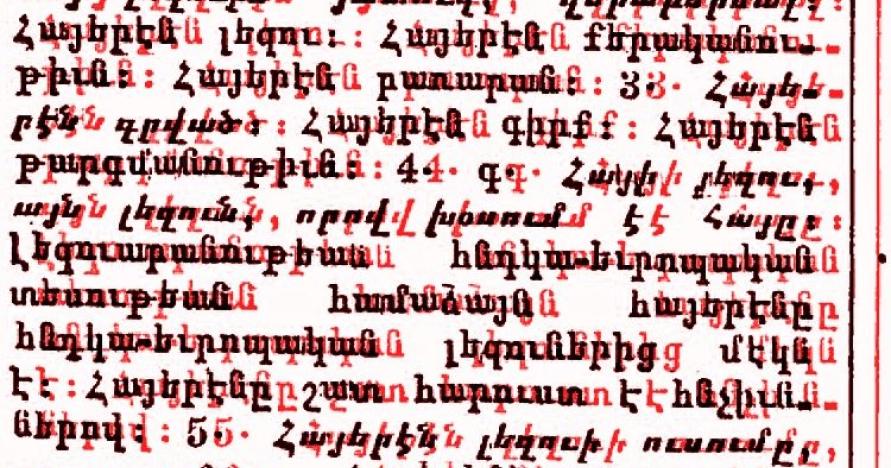 Հայերէն լեզու։ Հայերէն քերականու-
թիւն։ Հայերէն բառարան։ 3. Հայե-
րէն գրված։ Հայերէն գիրք։ Հայերէն
թարգմանութիւն։ 4. գ. Հայի լեզու,
այն լեզուն, որով խօսում է Հայը։
Լեզուաբանութեան հնդկա-եւրոպական
տեսութեան համաձայն հայերէնը
հնդկա-եւրոպական լեզուներից մէկն
է։ Հայերէնը շատ հարուստ է հնչիւն-
ներով։ 5. Հայերէն լեզուի ուսումը,